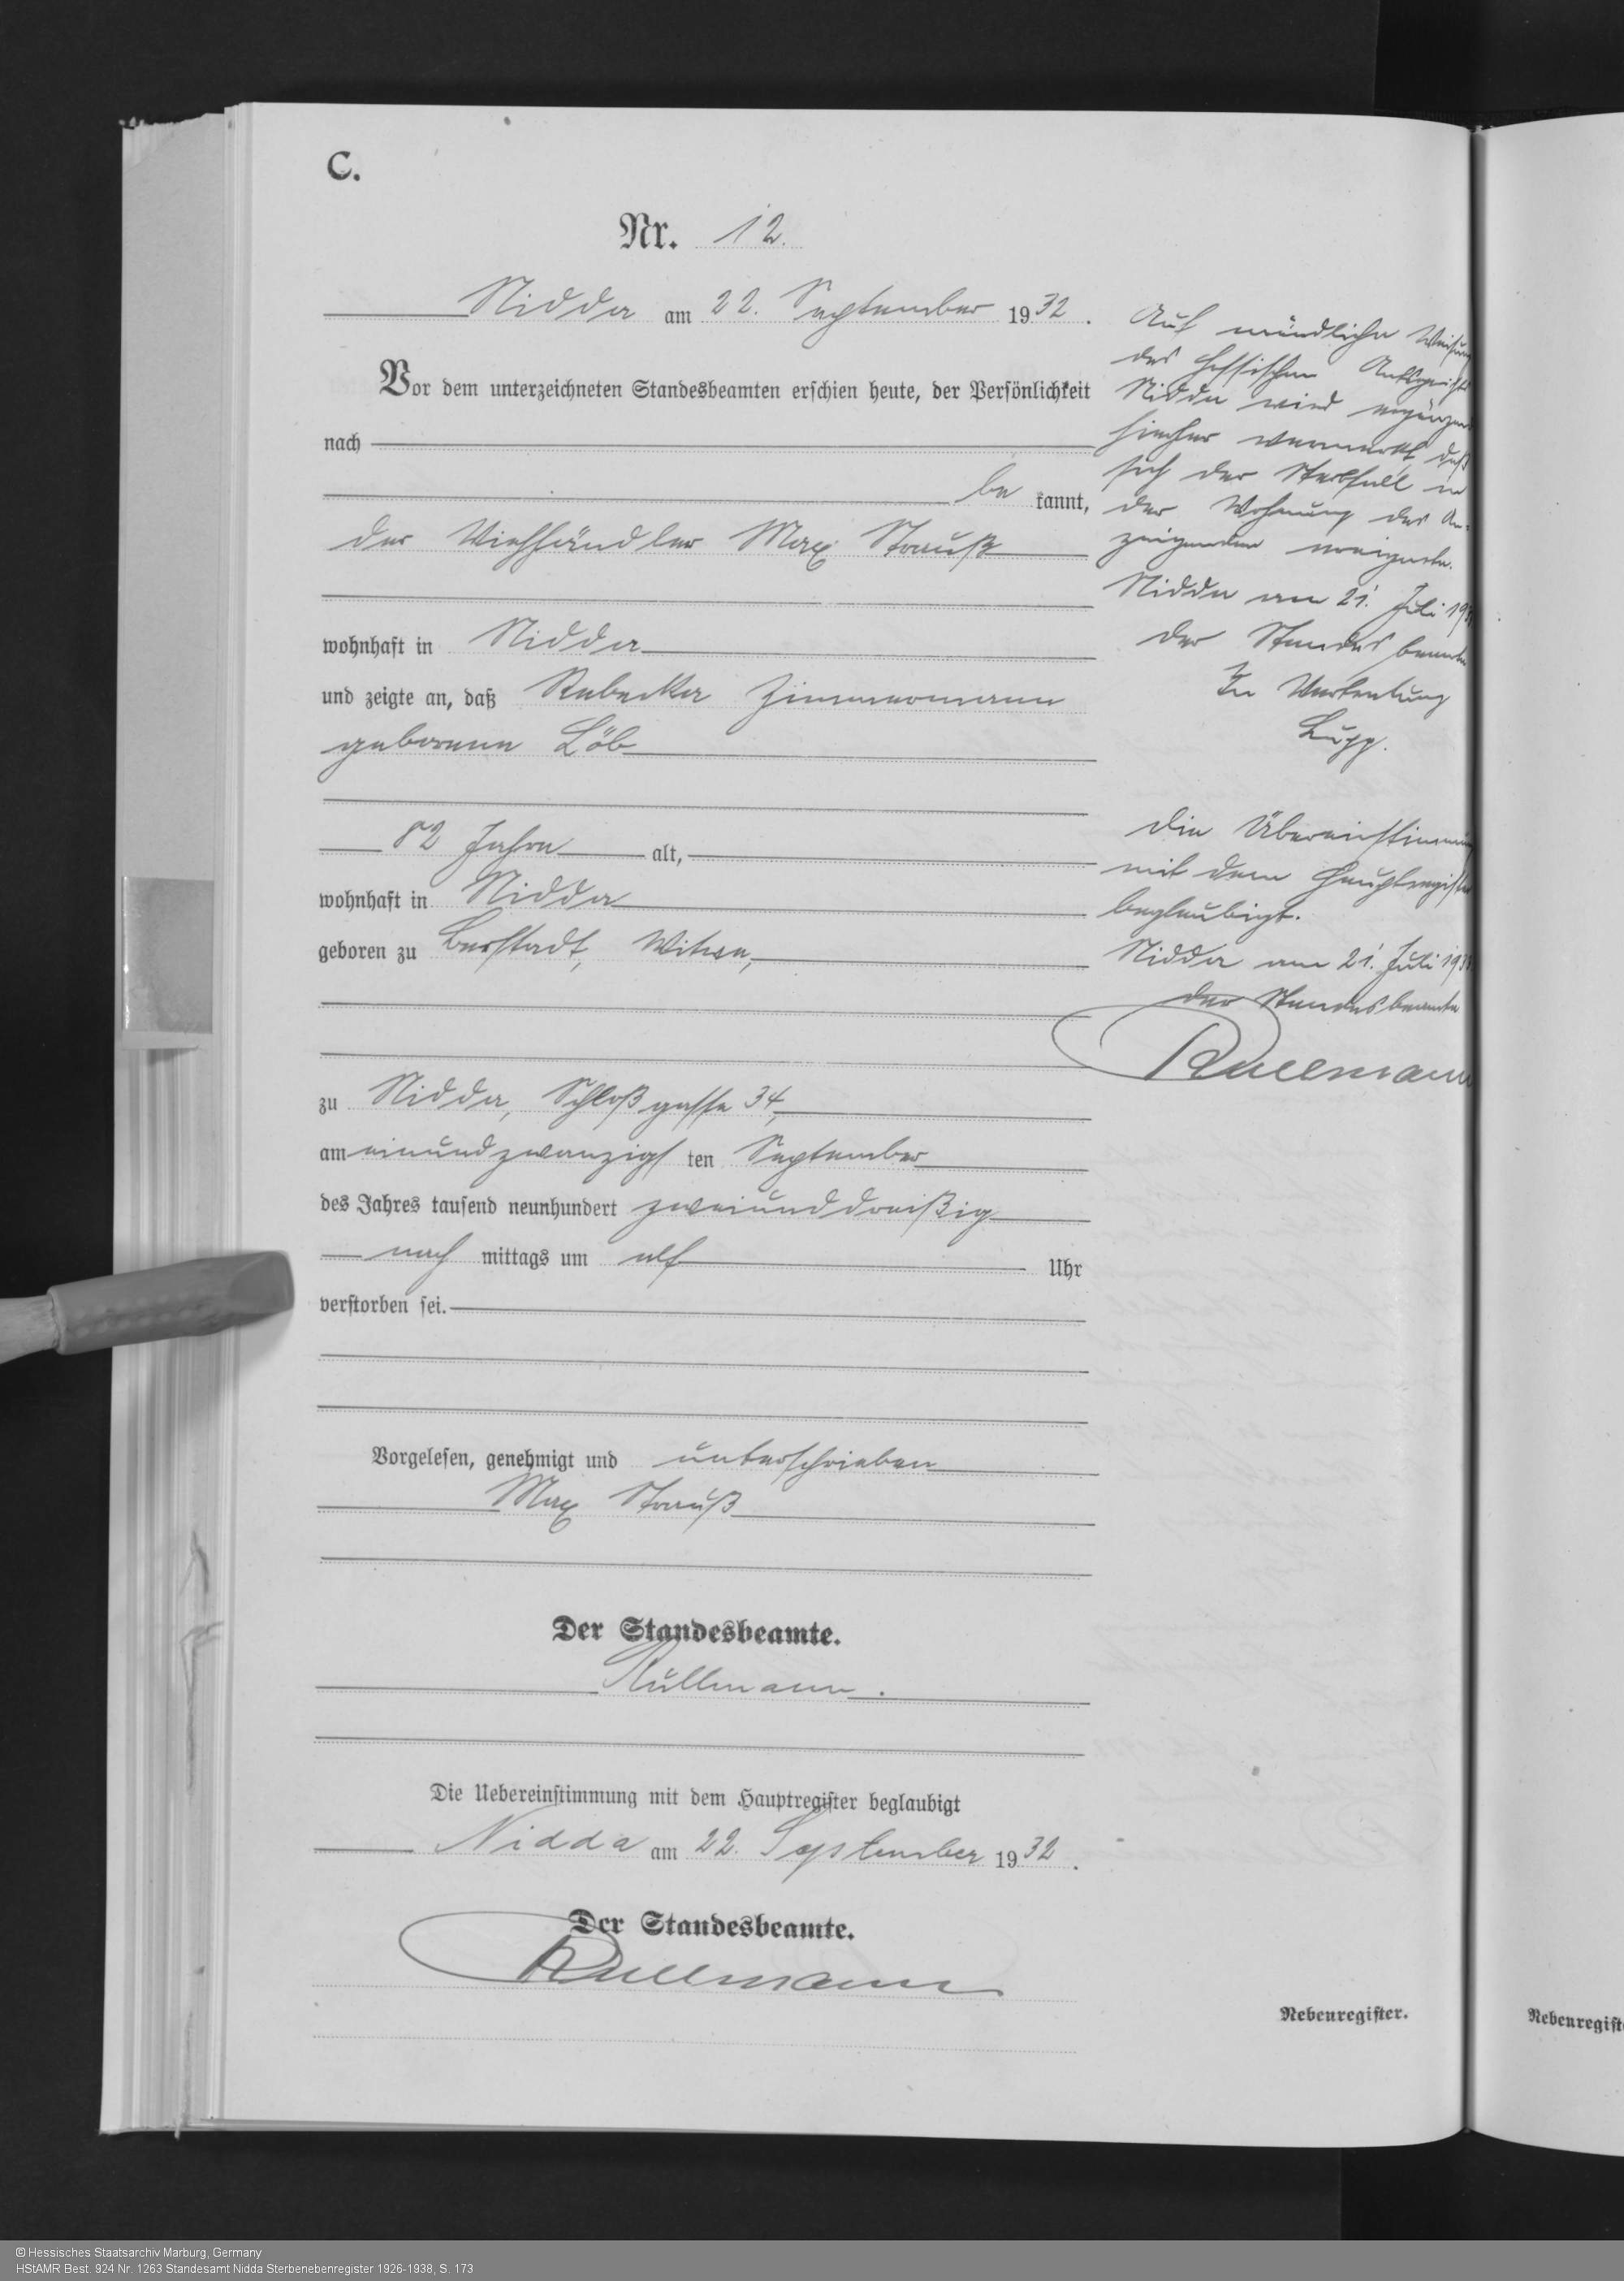 C.
Nr. 12.
Nidda am 22. September 1932.
Vor dem unterzeichneten Standesbeamten erschien heute, der Persönlichkeit
nach
be kannt,
der Viehhändler Max Strauß
wohnhaft in Nidda
und zeigte an, daß Rebecka Zimmermann
geborene Löb
82 Jahre alt,
wohnhaft in Nidda
geboren zu Berstadt, Witwe,
zu Nidda, Schloßgasse 34,
am einundzwanzigsten September
des Jahres tausend neunhundert zweiunddreißig
nach mittags um elf Uhr
verstorben sei.
Vorgelesen, genehmigt und unterschrieben
Max Strauß
Der Standesbeamte.
Rullmann.
Die Uebereinstimmung mit dem Hauptregister beglaubigt
Nidda am 22. September 1932.
Der Standesbeamte.
Rullmann
Auf mündliche Weisung
des Hessischen Amtsgerichts
Nidda wird ergänzend
hierher vermerkt, daß
sich der Sterbfall in
der Wohnung des An-
zeigenden ereignete.
Nidda am 21. Juli 19
Der Standesbeamte
In Vertretung
Lupp.
Die Übereinstimmung
mit dem Hauptregister
beglaubigt.
Nidda am 21. Juli 19
Der Standesbeamte
Rullmann
Nebenregister.
Nebenregiste
© Hessisches Staatsarchiv Marburg, Germany
HStAMR Best. 924 Nr. 1263 Standesamt Nidda Sterbenebenregister 1926-1938, S. 173